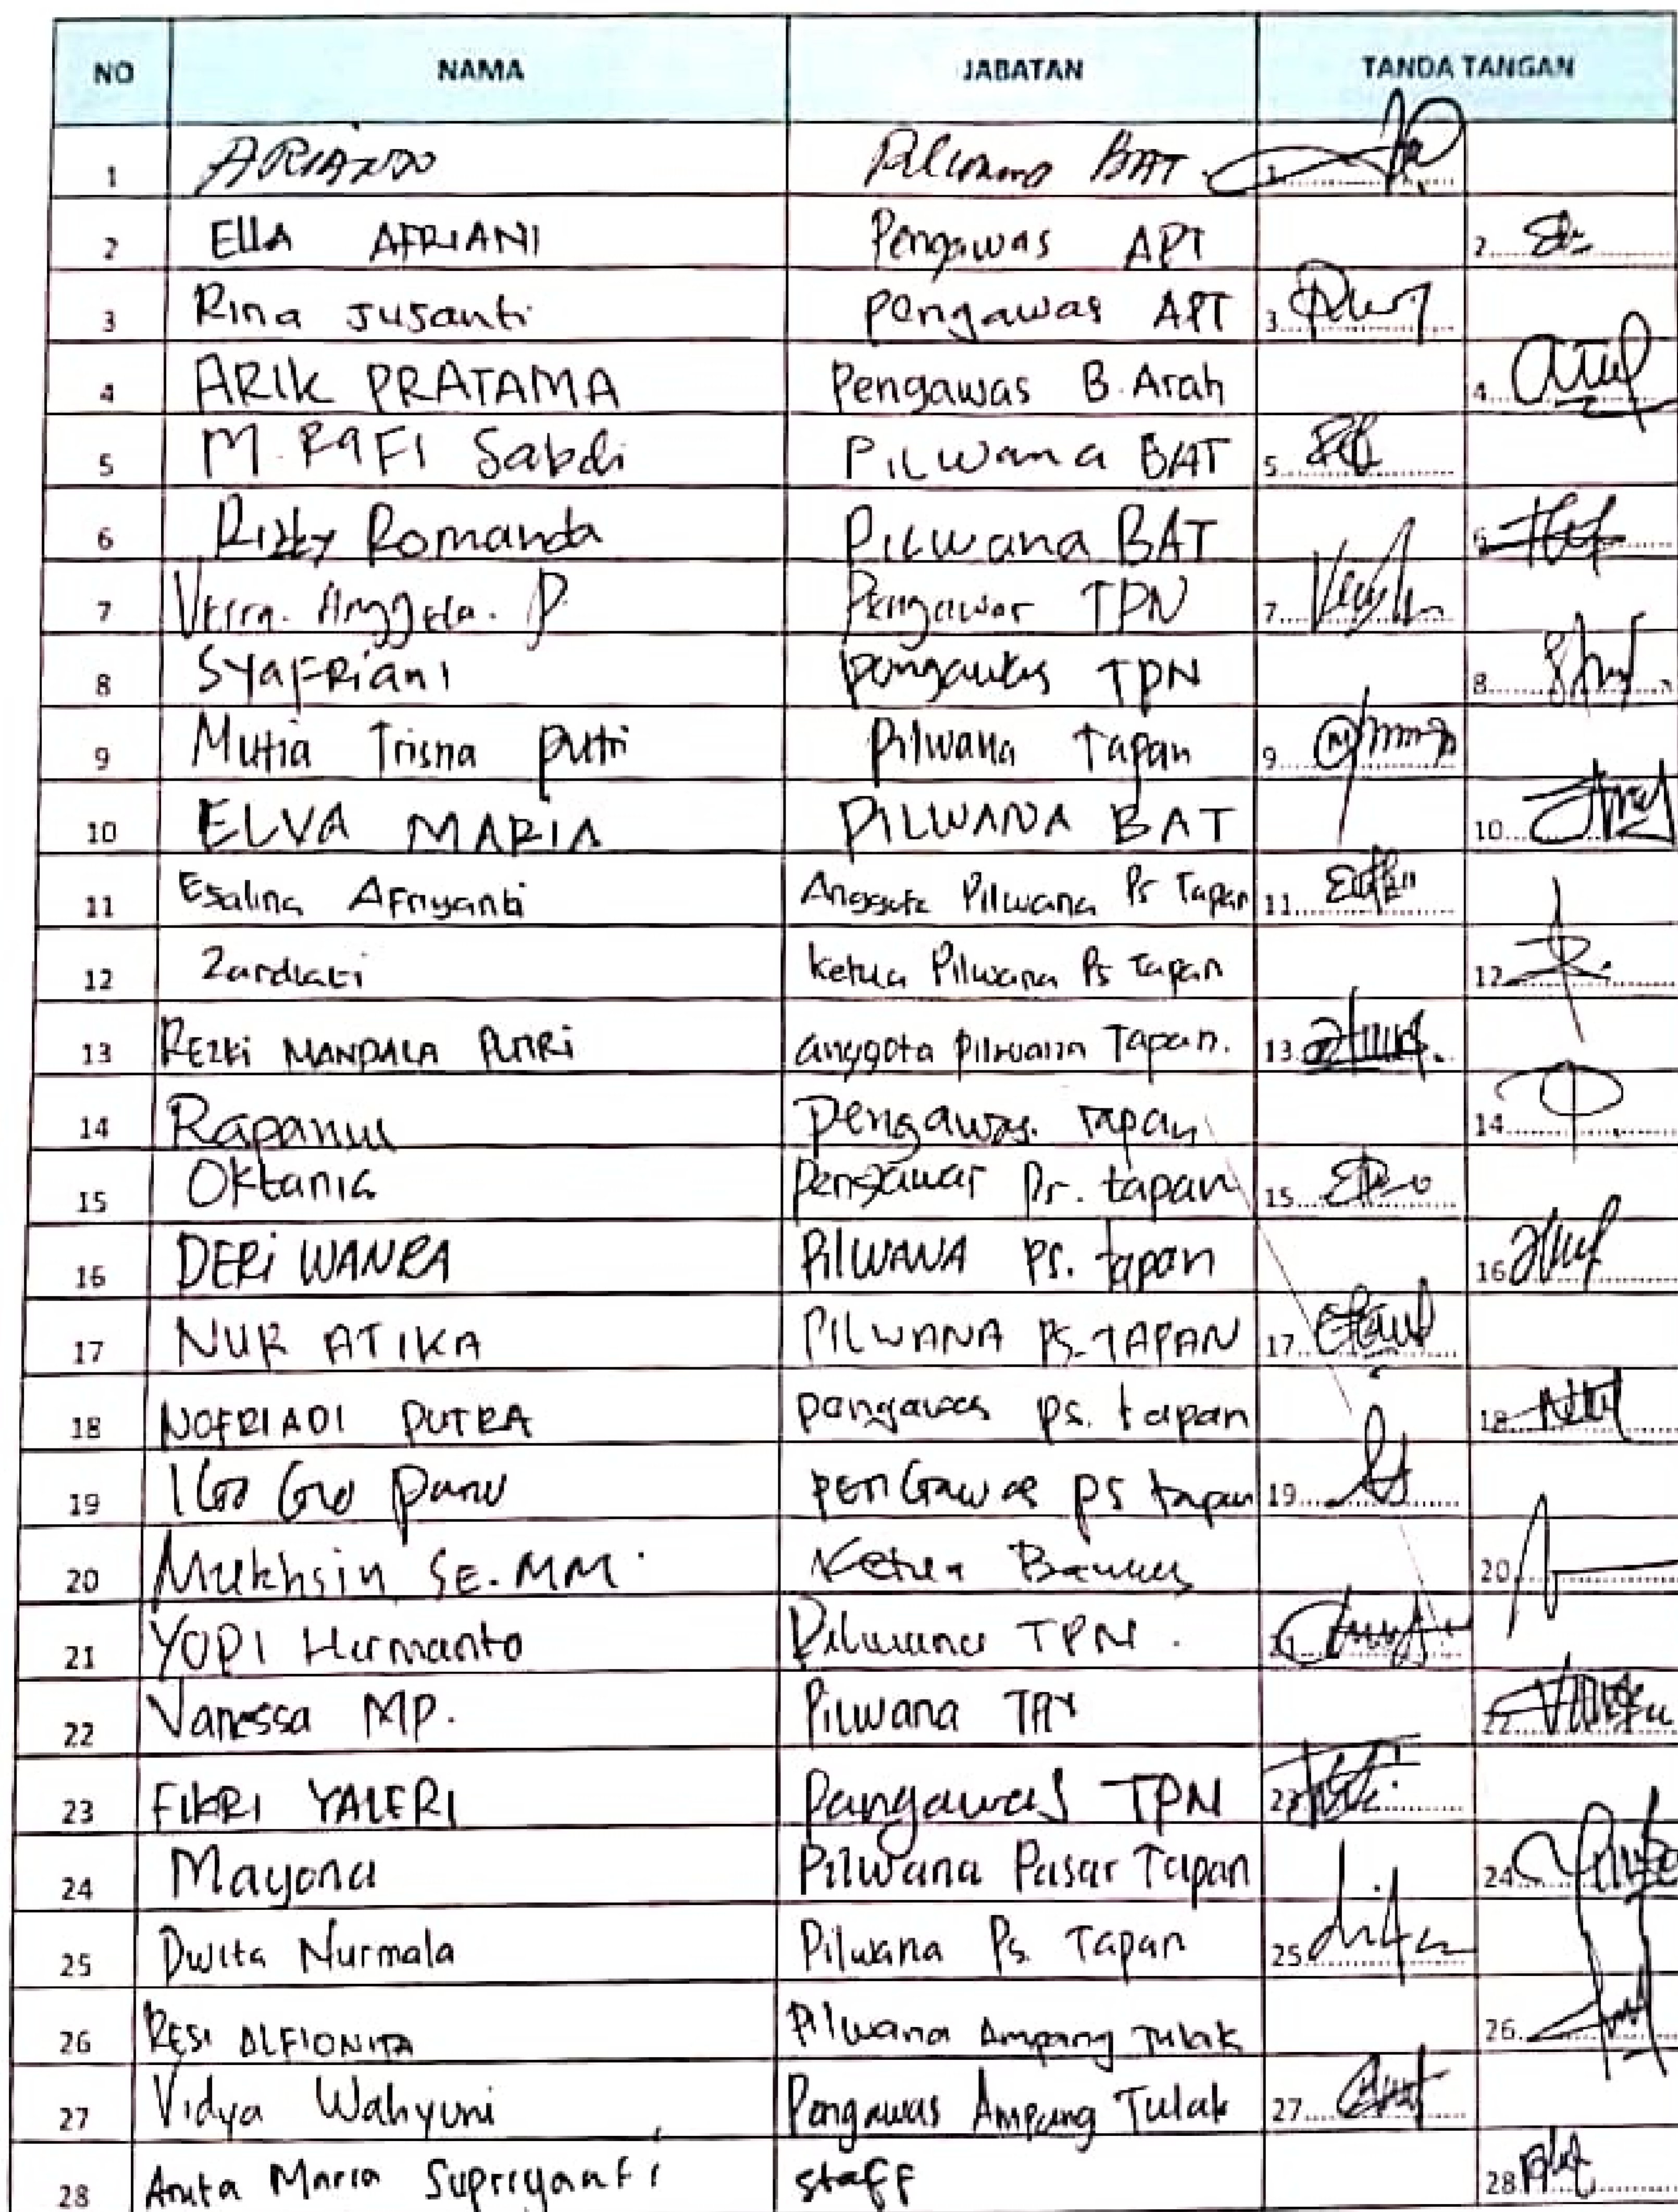 NO NAMA JABATAN TANDA TANGAN
1 ARIANDO BAT 1
2 EllA AFRIANI Pengawas APT 2
3 Rina Jusanti Pengawas APT 3
4 ARIK PRATAMA Pengawas B. Arah 4
5 M. RAFI Sabdi PILWana BAT 5
6 Rizky Romanda PILWana BAT 6
7 P. Pengawas TPN 7
8 SyaFRiani pengawas TPN 8
9 Mutia Trisna putri Pilwana Tapan 9
10 ELVA MARIA PILWANA BAT 10
11 Esalina Afriyanti Anggota Pilwana Ps Tapan 11
12 Zardiati Ketua Pilwana Ps Tapan 12
13 REZKi MANDALA PUTRi anggota pilwana Tapan. 13
14 pengawas. Tapan 14
15 Oktania Pengawas Ps. tapan 15
16 DERi WANRA PilWANA Ps. tapan 16
17 NUR ATIKA PILWANA Ps. TAPAN 17
18 NOFRIADI PUTRA pengawas ps. tapan 18
19 PENGawas ps tapan 19
20 Mukhsin SE. MM. Ketua 20
21 YOPI Hermanto Pilwana TPN. 21
22 Vanessa MP. Pilwana 22
23 FIKRI YALERI Pangawas TPN 23
24 Mayona Pilwana Pasar Tapan 24
25 Dwita Nurmala Pilwana Ps. Tapan 25
26 RESI ALFIONITA Pilwana Ampang Tulak 26
27 Vidya Wahyuni Pengawas Ampang Tulak 27
28 Anita Maria Supriyanti staff 28